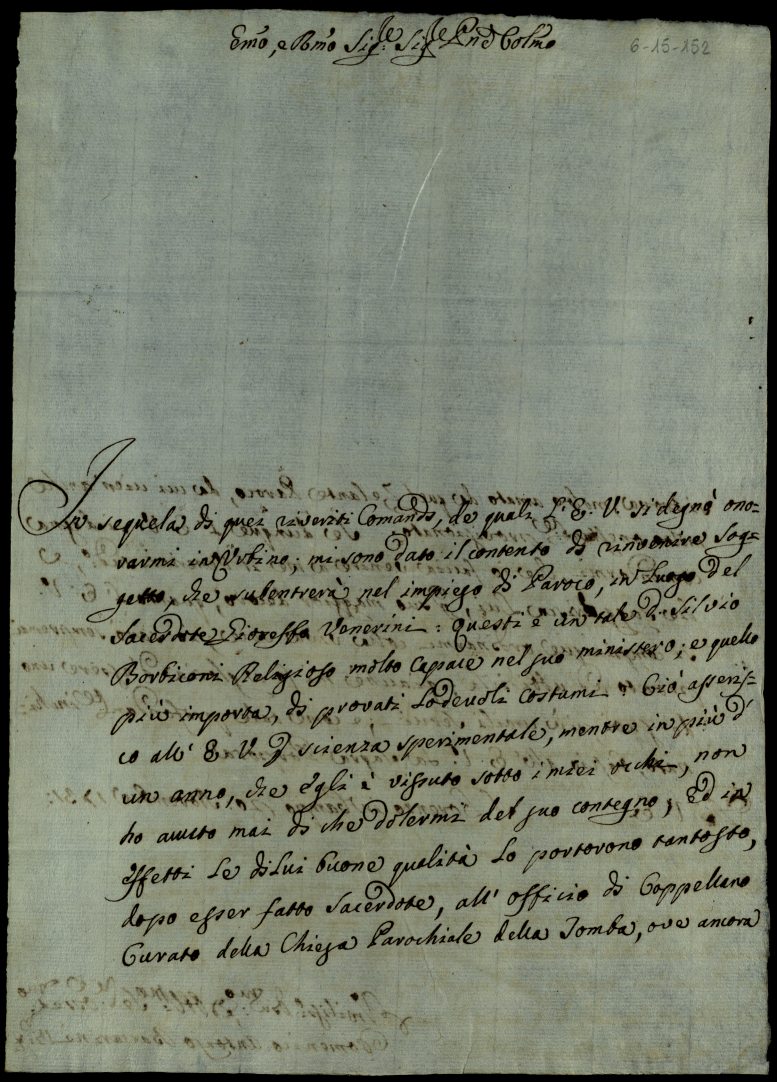 Emo, e Rmo Sige: Sige Pne Colmo
6-15-152
In sequela di quei riveriti Comandi, de quali l' E. V. si degnò ono-
rarmi in Urbino: mi sono dato il contento di rinvenire Sog-
getto, che subentrerà nel impiego di Paroco, in luogo del
Sacerdote Venerini: Questi è un tale D. Silvio
Borbiconi Religioso molto capace nel suo ministero; e quello
più importa, di provati lodevoli costumi: Ciò asseris-
co all' E. V. p scienza sperimentale, mentre in più d'
un anno, che egli è vissuto sotto i miei occhi, non
ho avuto mai di che dolermi del suo contegno; Ed in
effetti le di lui buone qualità lo portorono tantosto,
dopo esser fatto Sacerdote, all' officio di Coppellano
Curato della Chiesa Parochiale della Tomba, ove ancora